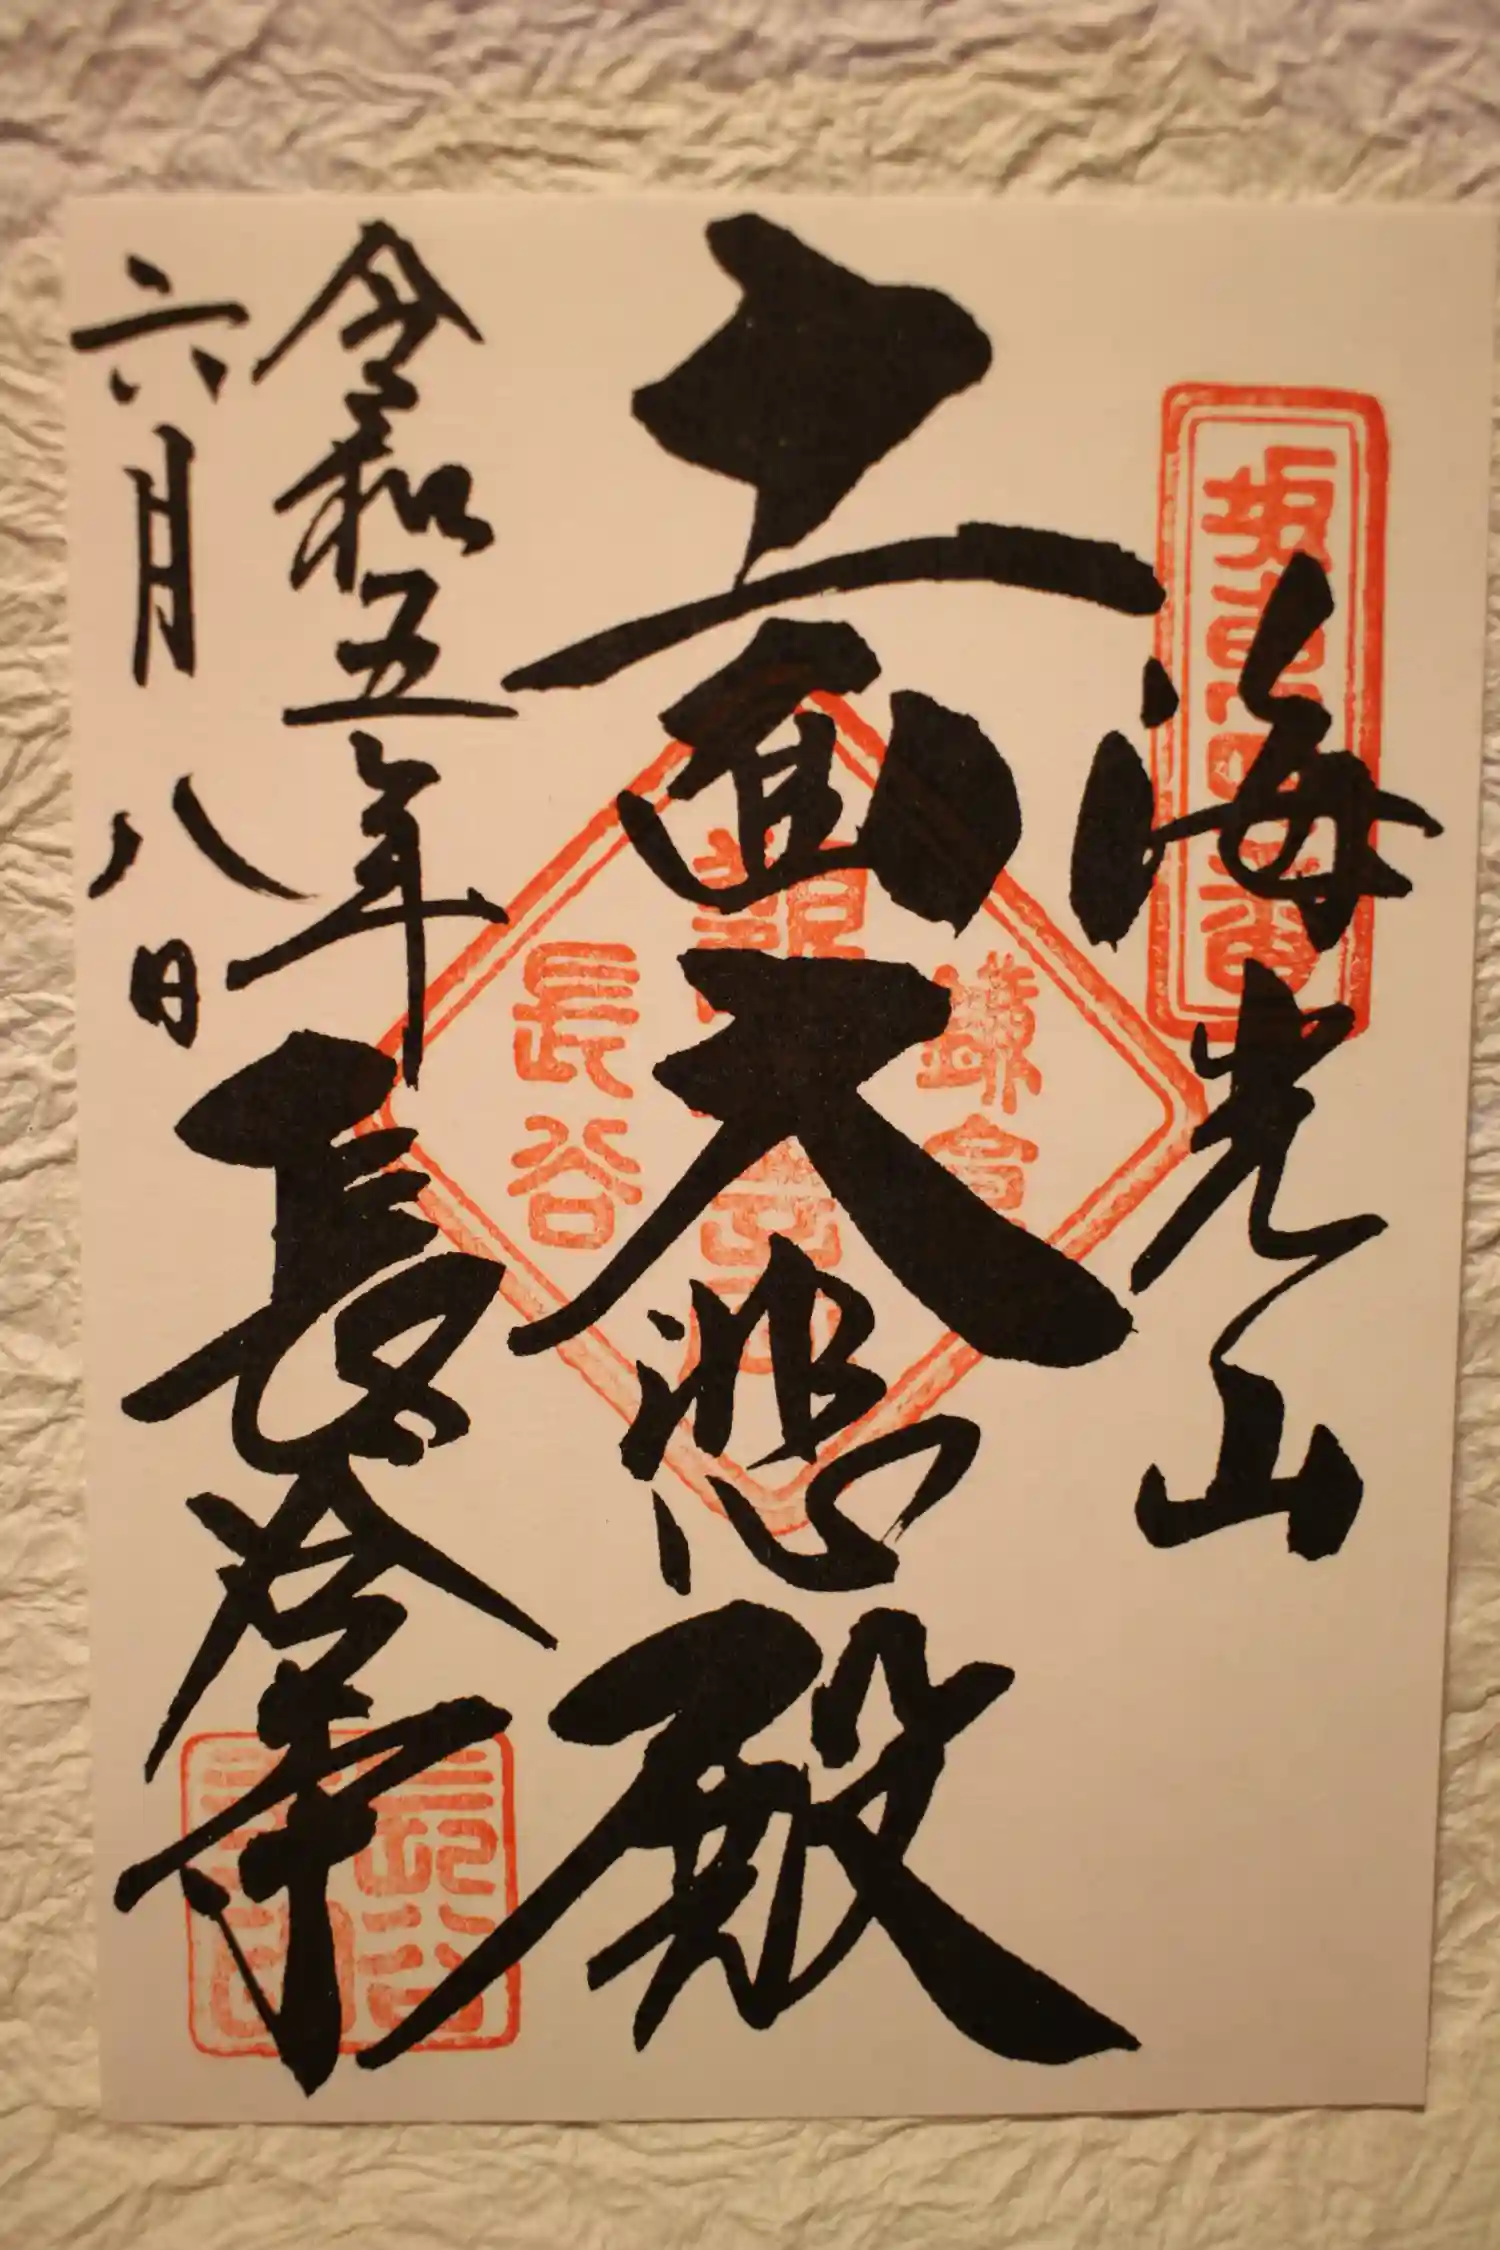 坂東四番
海光山
十一面大悲殿
鎌倉
長谷
令和五年
六月八日
長谷寺